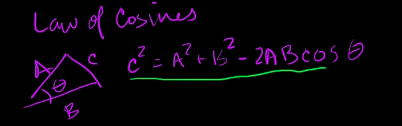 Law of Cosines
A C
θ
B
C² = A² + B² - 2AB cos θ